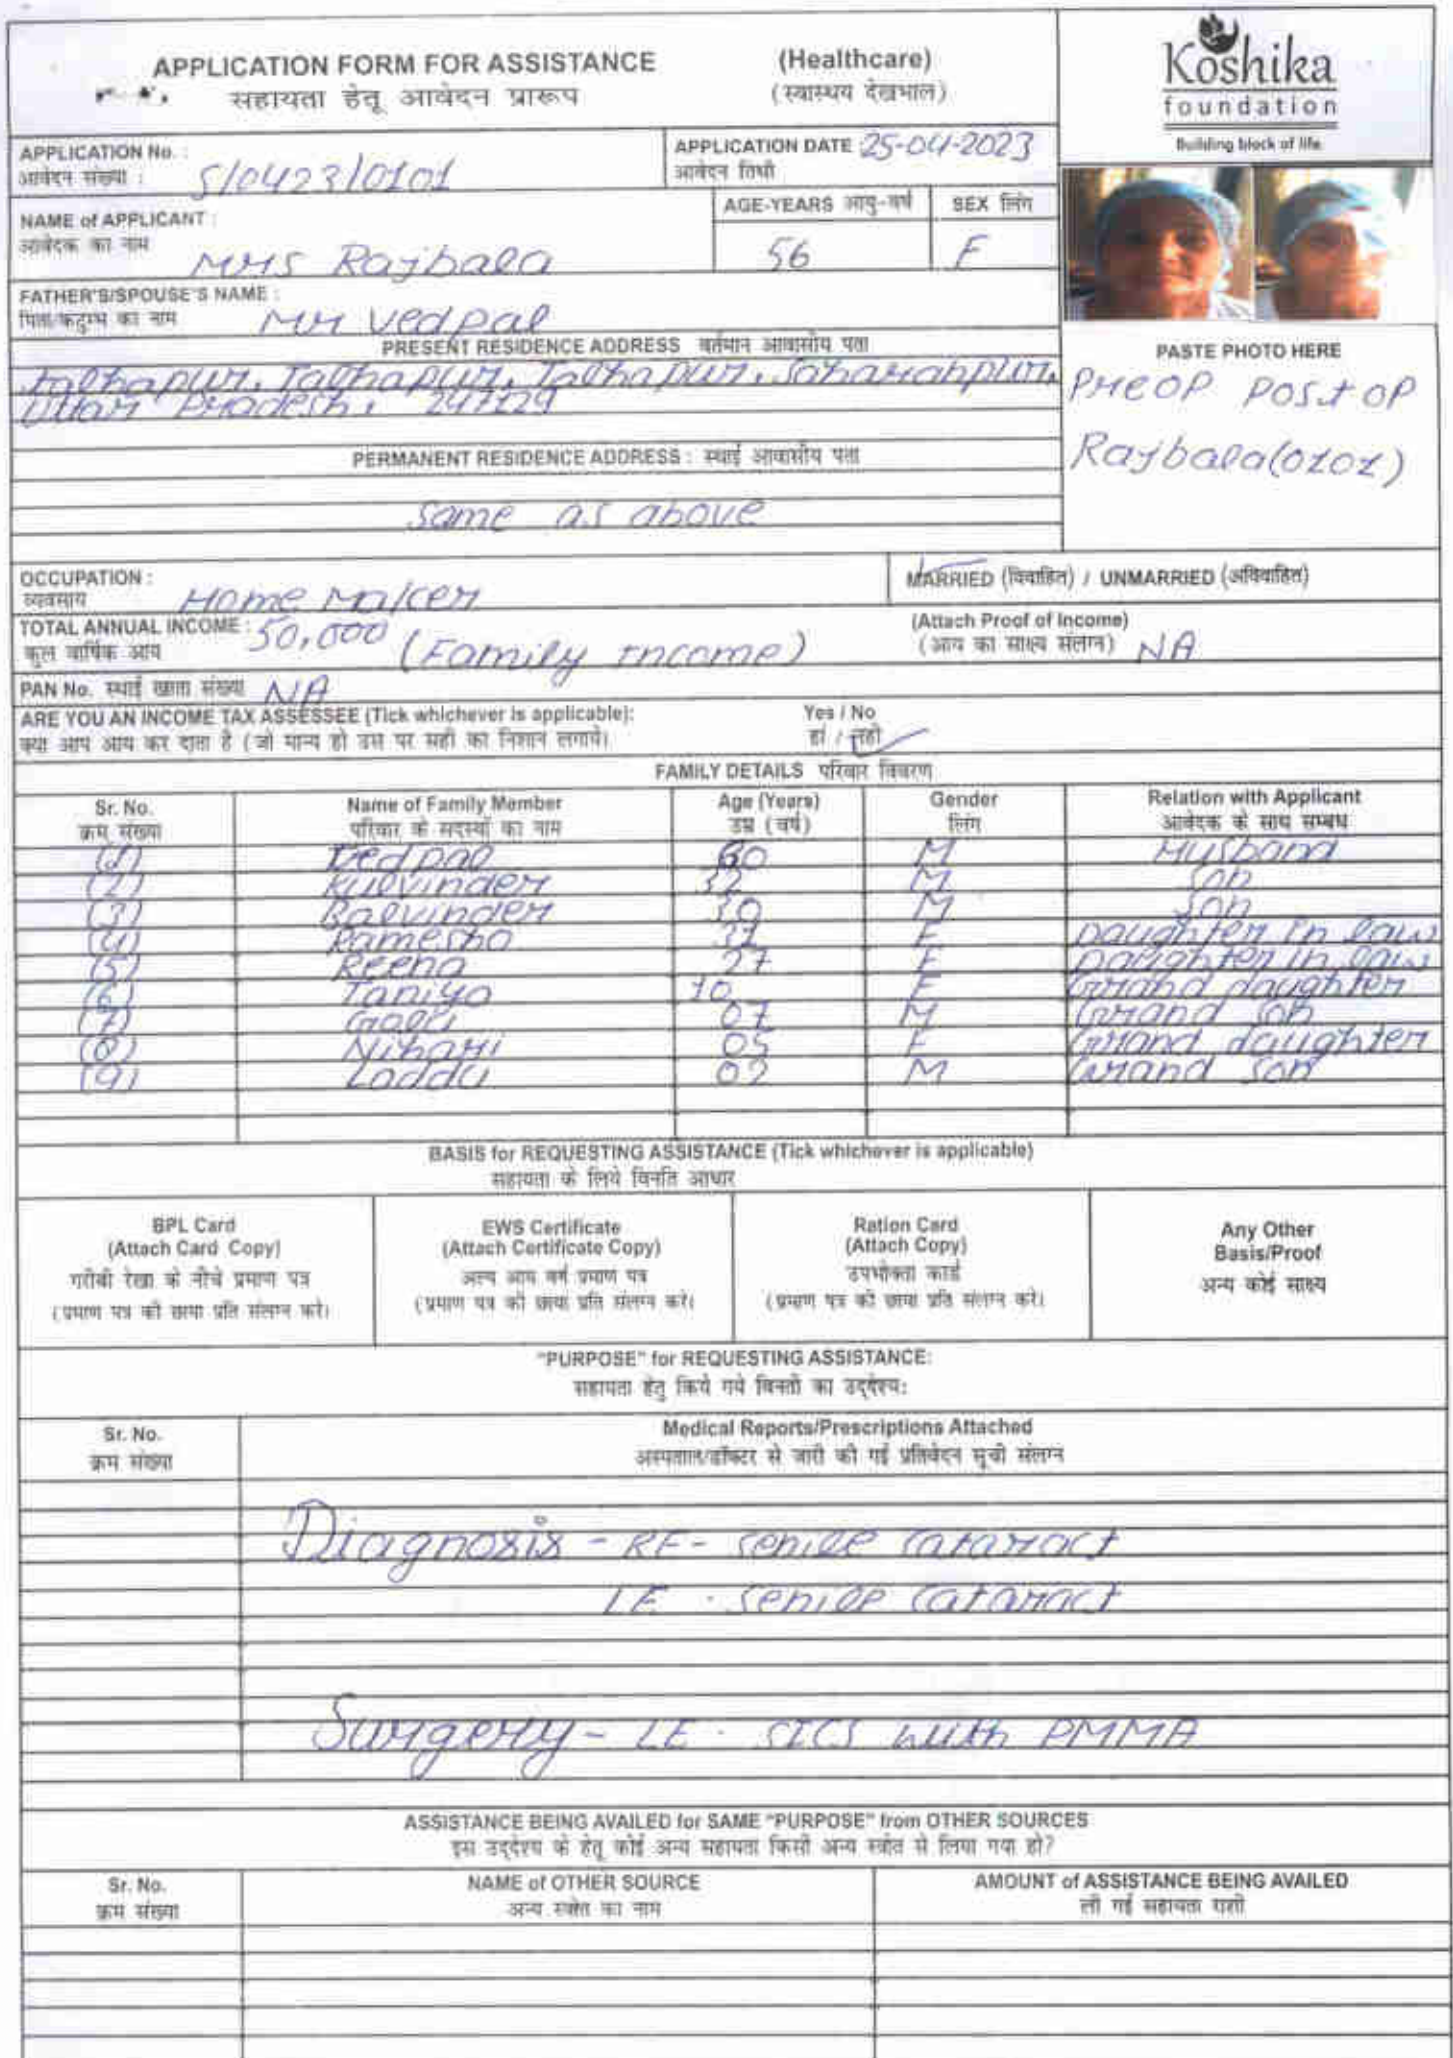 APPLICATION FORM FOR ASSISTANCE (Healthcare)
सहायता हेतू आवेदन प्रारूप (स्वास्थय देखभाल)
Koshika
foundation
Building block of life
APPLICATION No. : S/0423/0101
आवेदन संख्या :
APPLICATION DATE 25-04-2023
आवेदन तिथी
NAME of APPLICANT : Mrs Rajbala
आवेदक का नाम
AGE-YEARS आयु-वर्ष 56
SEX लिंग F
FATHER'S/SPOUSE'S NAME : Mr Vedpal
पिता/कटुम्भ का नाम
PRESENT RESIDENCE ADDRESS वर्तमान आवासीय पता
Talhapur, Talhapur, Talhapur, Saharahpur,
Uttar Pradesh, 247129
PASTE PHOTO HERE
PreOP Post OP
Rajbala(0101)
PERMANENT RESIDENCE ADDRESS : स्थाई आवासीय पता
Same as above
OCCUPATION : Home Maker
व्यवसाय
MARRIED (विवाहित) / UNMARRIED (अविवाहित)
TOTAL ANNUAL INCOME : 50,000 (Family Income)
कुल वार्षिक आय
(Attach Proof of Income)
(आय का साक्ष्य संलग्न) NA
PAN No. स्थाई खाता संख्या NA
ARE YOU AN INCOME TAX ASSESSEE (Tick whichever is applicable): Yes / No
क्या आप आय कर दाता है (जो मान्य हो उस पर सही का निशान लगाये। हां / नहीं
FAMILY DETAILS परिवार विवरण
Sr. No. Name of Family Member Age (Years) Gender Relation with Applicant
क्रम संख्या परिवार के सदस्यों का नाम उम्र (वर्ष) लिंग आवेदक के साथ सम्बंध
(1) Vedpal 60 M Husband
(2) Kulvinder 32 M Son
(3) Balvinder 30 M Son
(4) Ramesho 31 F Daughter in law
(5) Reena 27 F Daughter in law
(6) Taniya 10 F Grand daughter
(7) Golu 07 M Grand Son
(8) Nihari 05 F Grand daughter
(9) Laddu 02 M Grand Son
BASIS for REQUESTING ASSISTANCE (Tick whichever is applicable)
सहायता के लिये विनति आधार
BPL Card
(Attach Card Copy)
गरीबी रेखा के नीचे प्रमाण पत्र
(प्रमाण पत्र की छाया प्रति संलग्न करे।
EWS Certificate
(Attach Certificate Copy)
अल्प आय वर्ग प्रमाण पत्र
(प्रमाण पत्र की छाया प्रति संलग्न करे।
Ration Card
(Attach Copy)
उपभोक्ता कार्ड
(प्रमाण पत्र की छाया प्रति संलग्न करे।
Any Other
Basis/Proof
अन्य कोई साक्ष्य
"PURPOSE" for REQUESTING ASSISTANCE:
सहायता हेतु किये गये विनती का उद्देश्य:
Sr. No. Medical Reports/Prescriptions Attached
क्रम संख्या अस्पताल/डॉक्टर से जारी की गई प्रतिवेदन सूची संलग्न
Diagnosis - RE - Senile Cataract
LE - Senile Cataract
Surgery - LE - SICS with PMMA
ASSISTANCE BEING AVAILED for SAME "PURPOSE" from OTHER SOURCES
इस उद्देश्य के हेतू कोई अन्य सहायता किसी अन्य स्त्रोत से लिया गया हो?
Sr. No. NAME of OTHER SOURCE AMOUNT of ASSISTANCE BEING AVAILED
क्रम संख्या अन्य स्त्रोत का नाम ली गई सहायता राशी